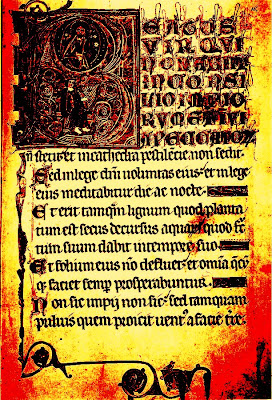 BEATUS
VIR QUI
NON ABIIT
IN CONSI
LIO IMPIO
RUM ET IN VI
stetit et in cathedra pestilecie. non sedit
Sed in lege dñi voluntas eius et in lege
eius meditabitur die ac nocte.
Et erit tamqm lignum quod planta
tum est secus decursus aquaꝝ. quod fc
tum suum dabit in tempore suo
Et folium eius nō defluet. et omīa qcq
q faciet semp prosperabuntur.
Non sic impij non sic. sed tamquam
puluis quem proicit uent' a facie tr̄e.